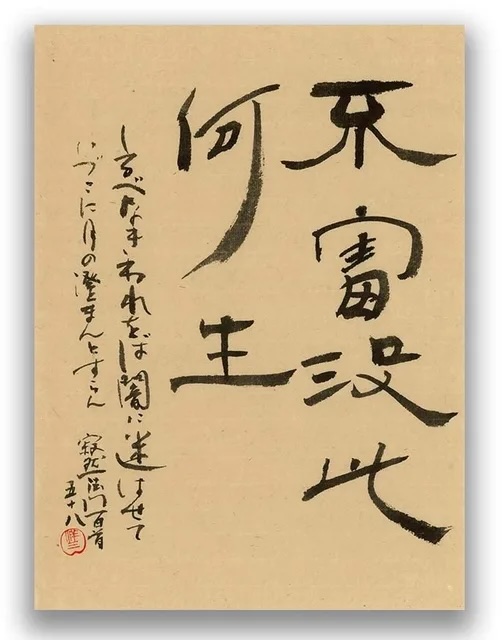 不審没此
何生
しるべなきわれをば闇に迷はせて
いづこに月の澄まんとすらん
寂然法門百首
五十八